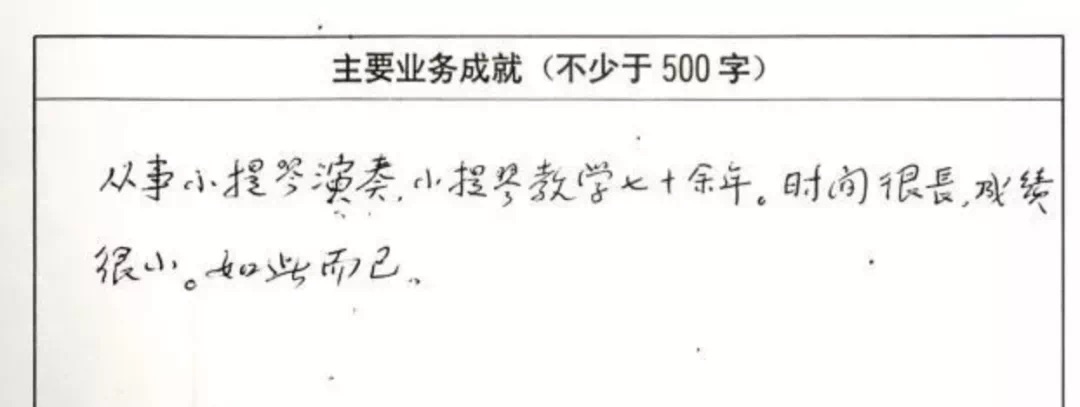 主要业务成就（不少于 500 字）
从事小提琴演奏，小提琴教学七十余年。时间很長，成绩
很小。如此而已。